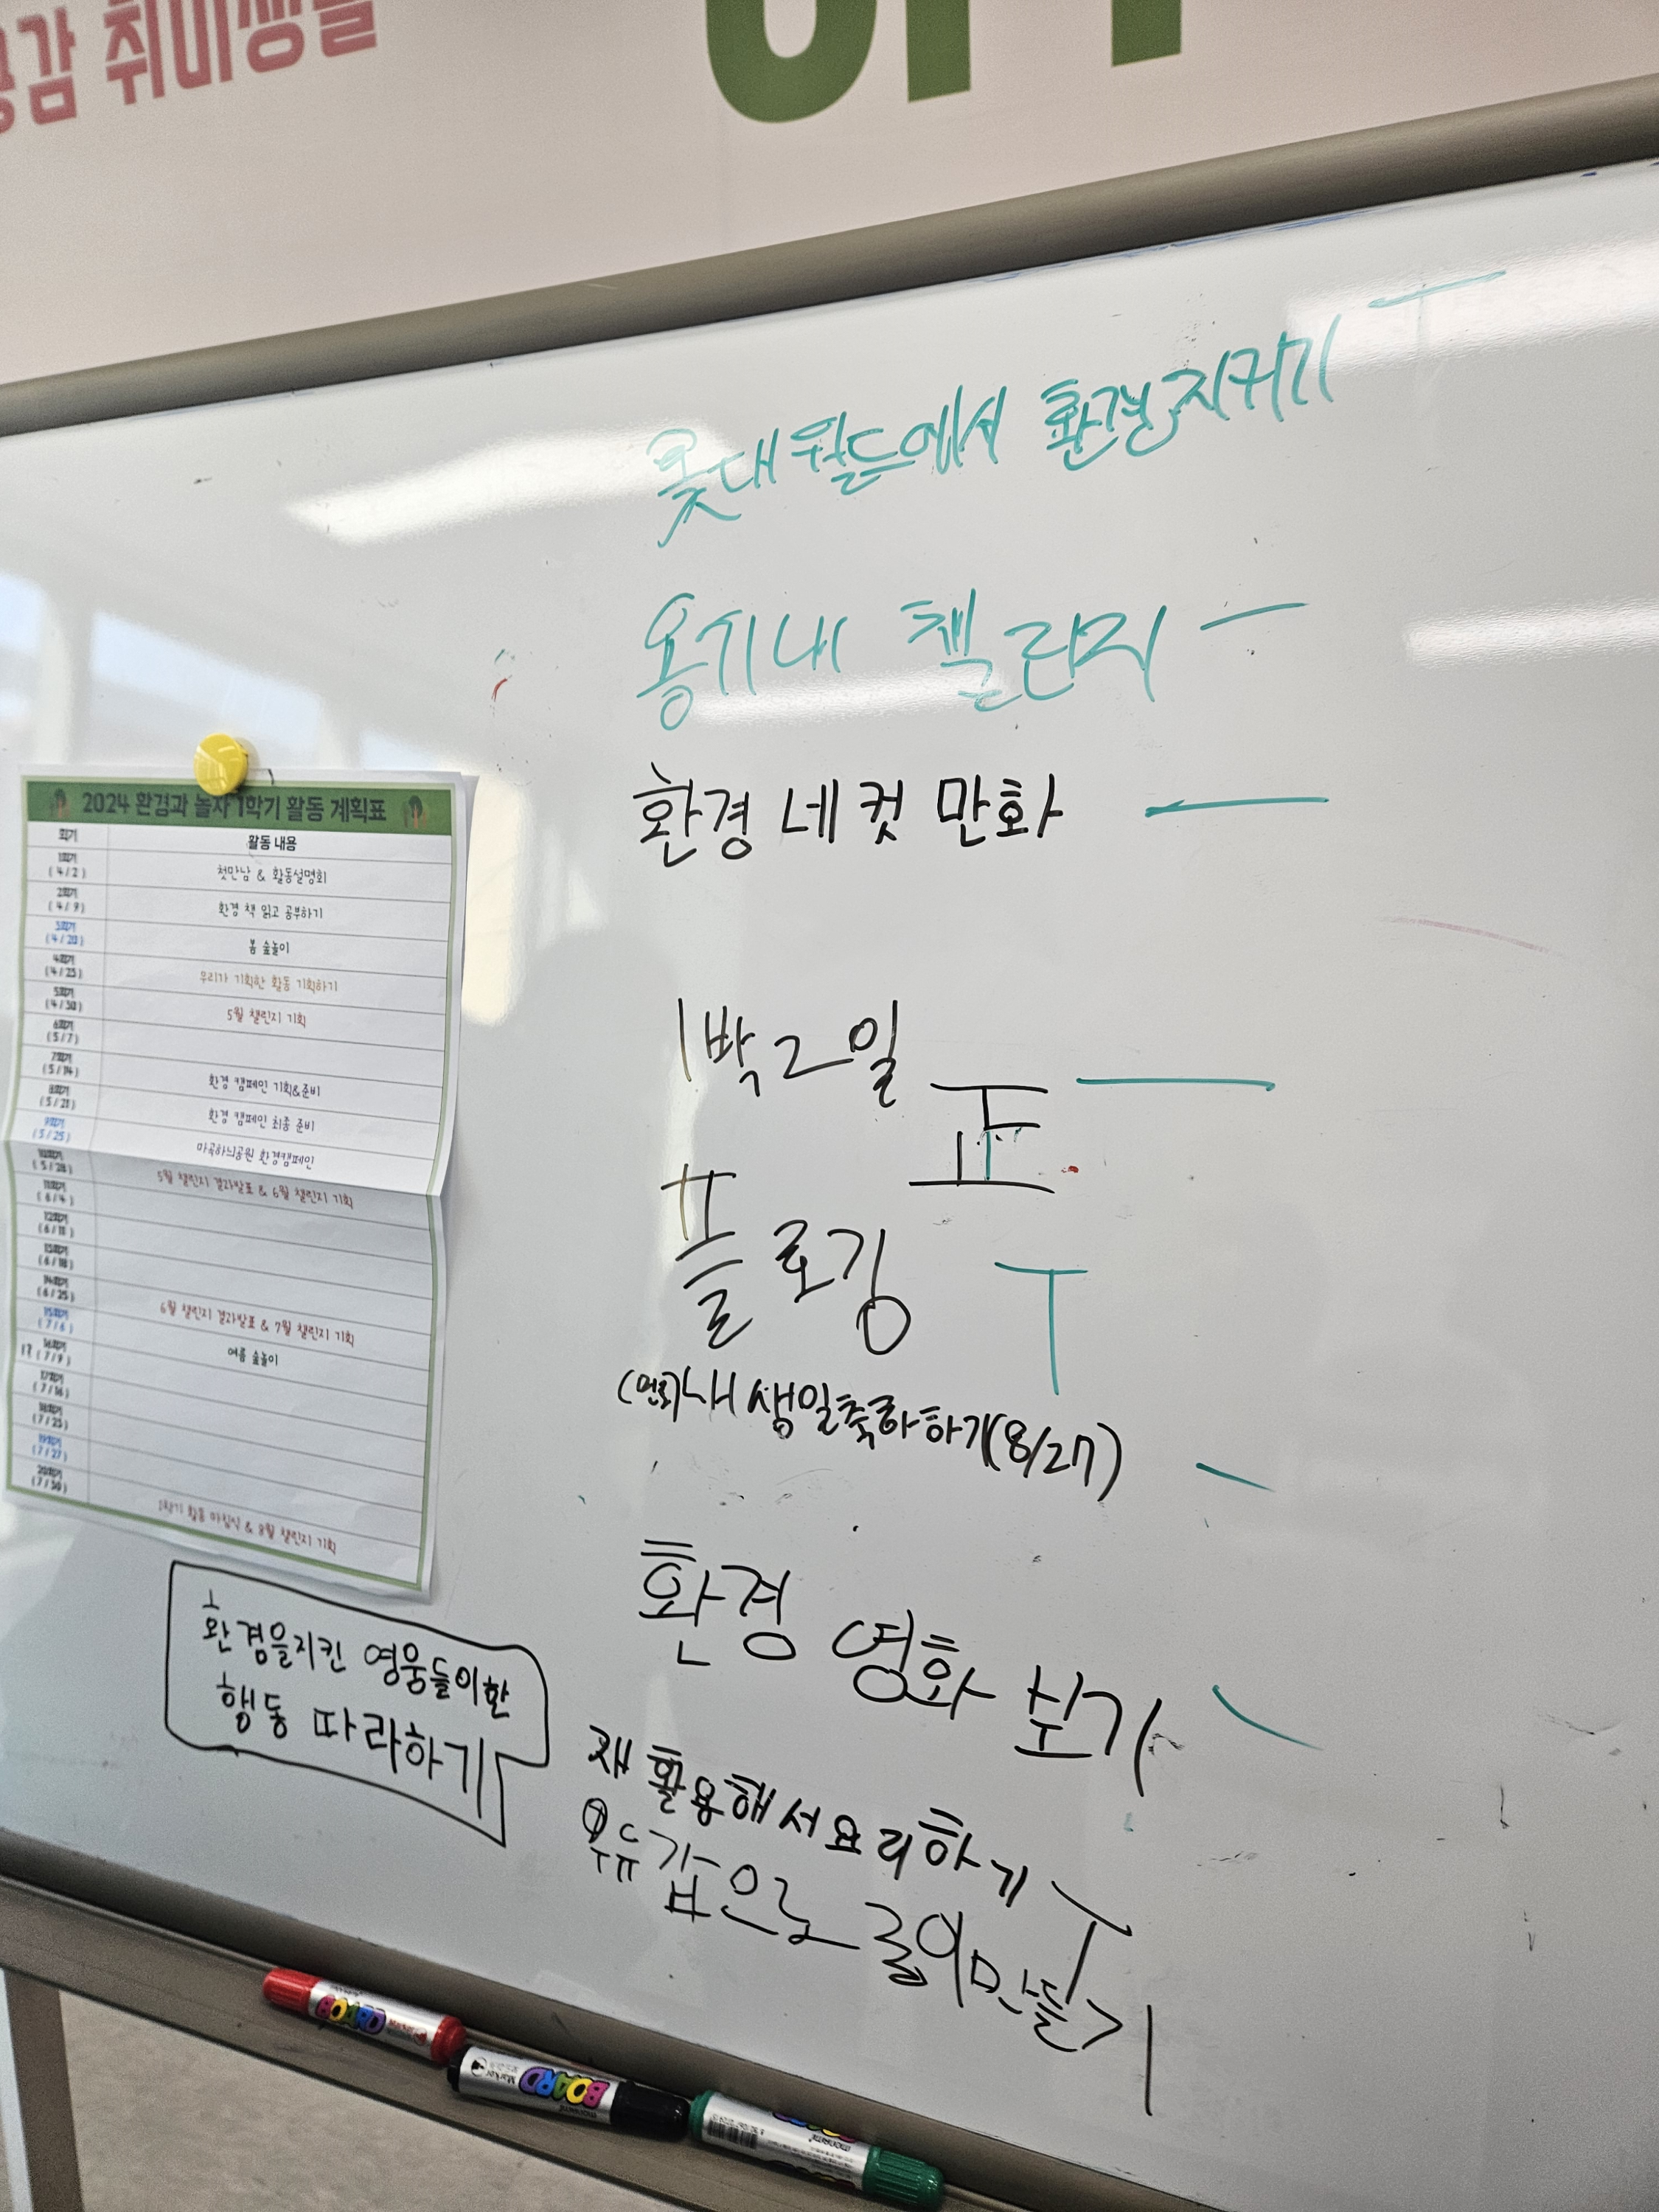 공감 취미생활
롯데월드에서 환경지키기
용기내 챌린지
환경 네컷 만화
1박2일
플로깅
내 생일축하하기(8/27)
환경 영화 보기
재활용해서요리하기
우유갑으로 종이만들기
환경을지킨 영웅들이환
행동 따라하기
2024 환경과 놀자 1학기 활동 계획표
회기 활동 내용
1회기 (4/2) 첫만남 & 활동설명회
2회기 (4/9) 환경 책 읽고 공부하기
3회기 (4/20) 봄 숲놀이
4회기 (4/23) 우리가 기획한 활동 기획하기
5회기 (4/30) 5월 챌린지 기획
6회기 (5/7)
7회기 (5/14) 환경 캠페인 기획&준비
8회기 (5/21) 환경 캠페인 최종 준비
9회기 (5/25) 마곡하늬공원 환경캠페인
10회기 (5/28) 5월 챌린지 결과발표 & 6월 챌린지 기획
11회기 (6/4)
12회기 (6/11)
13회기 (6/18)
14회기 (6/25) 6월 챌린지 결과발표 & 7월 챌린지 기획
15회기 (7/6) 여름 숲놀이
16회기 (7/9)
17회기 (7/16)
18회기 (7/23)
19회기 (7/27)
20회기 (7/30) 1학기 활동 마침식 & 8월 챌린지 기획
BOARD
BOARD Marker